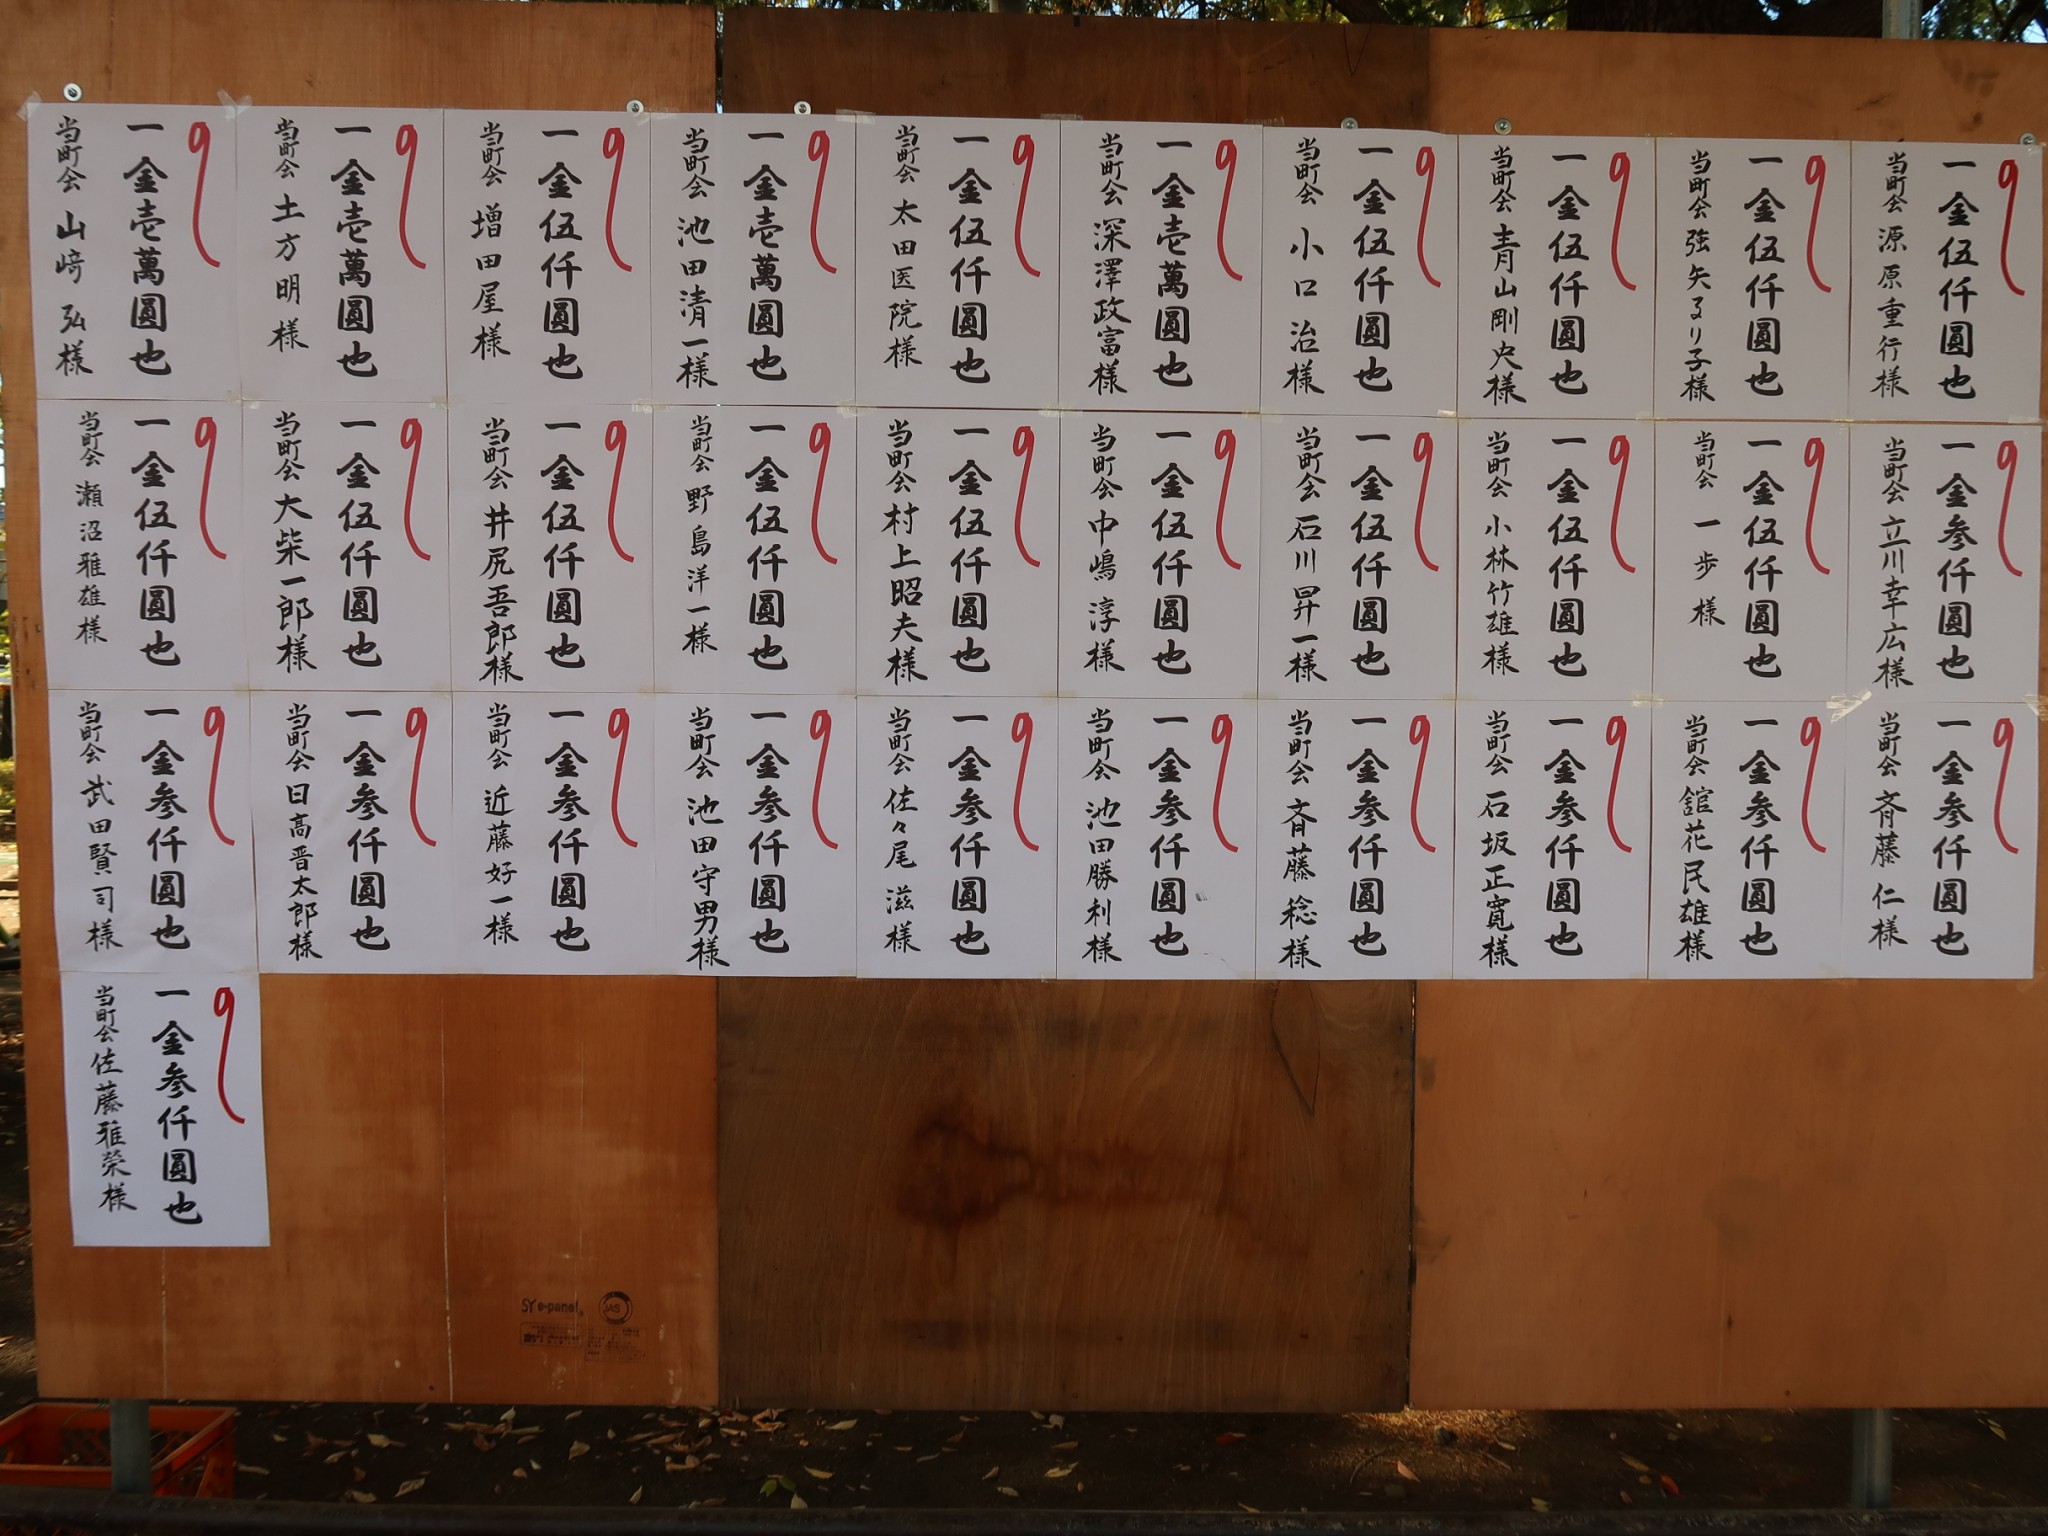 一金壱萬圓也
当町会 山﨑 弘様
一金壱萬圓也
当町会 土方明様
一金伍仟圓也
当町会 増田屋様
一金壱萬圓也
当町会 池田清一様
一金伍仟圓也
当町会 太田医院様
一金壱萬圓也
当町会 深澤政富様
一金伍仟圓也
当町会 小口治様
一金伍仟圓也
当町会 青山剛史様
一金伍仟圓也
当町会 強矢るり子様
一金伍仟圓也
当町会 源原重行様
一金伍仟圓也
当町会 瀬沼雅雄様
一金伍仟圓也
当町会 大柴一郎様
一金伍仟圓也
当町会 井尻吾郎様
一金伍仟圓也
当町会 野島洋一様
一金伍仟圓也
当町会 村上昭夫様
一金伍仟圓也
当町会 中嶋 淳様
一金伍仟圓也
当町会 石川昇一様
一金伍仟圓也
当町会 小林竹雄様
一金伍仟圓也
当町会 一歩様
一金参仟圓也
当町会 立川幸広様
一金参仟圓也
当町会 武田賢司様
一金参仟圓也
当町会 日高晋太郎様
一金参仟圓也
当町会 近藤好一様
一金参仟圓也
当町会 池田守男様
一金参仟圓也
当町会 佐々尾 滋様
一金参仟圓也
当町会 池田勝利様
一金参仟圓也
当町会 斉藤稔様
一金参仟圓也
当町会 石坂正寛様
一金参仟圓也
当町会 舘花民雄様
一金参仟圓也
当町会 斉藤 仁様
一金参仟圓也
当町会 佐藤雅榮様
SY e-panel
JAS